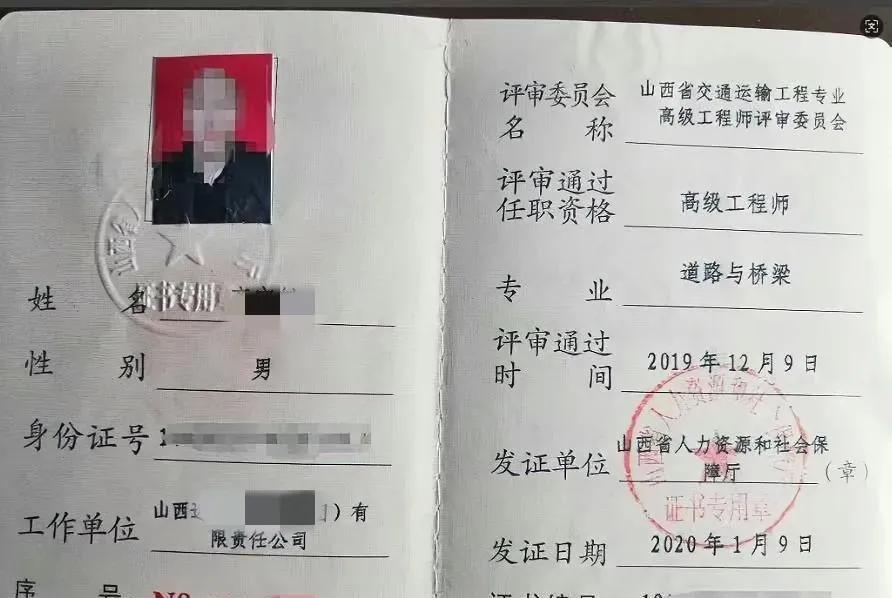 证书专用
姓 名
性 别 男
身份证号
工作单位 山西
）有
限责任公司
序 号
评审委员会
名 称
山西省交通运输工程专业
高级工程师评审委员会
评审通过
任职资格
高级工程师
专 业
道路与桥梁
评审通过
时 间
2019 年 12 月 9 日
发证单位
山西省人力资源和社会保
障厅
（章）
证书专用章
发证日期
2020 年 1 月 9 日